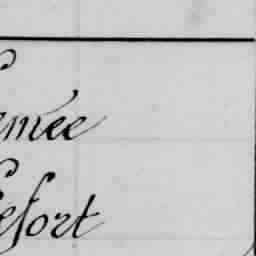 emée
efort